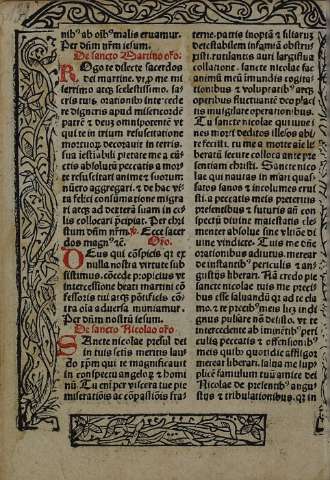 nibꝰ ab oībꝰ malis eruamur.
Per dn̄m nr̄m iesum.
De sancto Martino oro.
Rogo te dilecte sacerdos
dei martine. vt ꝓ me mi
serrimo atqꝫ scelestissimo. sa
cris tuis orationibꝰ inter cede
re digneris apud misericordē
patrē et deum omnipotentē vt
qui te in trium resuscitatione
mortuoꝝ decorauit in terris.
sua iestabili pietate me a cū
ctis absolutū peccatis a mor
te resuscitari animę et iustorum
numero aggregari. et de hac vi
ta felici consumatione migra
ri atqꝫ ad dexterā suam in ce
lis collocari precipiat. Per chri
stum dn̄m nr̄m. Ecce sacer
dos magnꝰ. Oro.
Deus qui cōspicis qꝛ ex
nulla nostra virtute sub
sistimus. cōcede propicius vt
intercessione beati martini cō
fessoris tui atqꝫ pōtificis. con
tra oīa aduersa muniamur.
Per dn̄m nostrū iesum.
De sancto Nicolao oro
Sancte nicolae presul dei
in tuis fetis meritis lau
do xp̄m qui te magnificauit
in conspectu angeloꝝ et homi
nū. Tu enī per viscera tue pie
miseratiōis ac cōpassiōis fra
terne. patris inopiā et filiarum
detestabilem infamiā obstru
xisti. rutilantis auri largistua
collatione. sancte nicolae fac
animū meū immundis cogita
tionibus et voluptatibꝰ atqꝫ
operibus fluctuantē deo place
ri misgslare operationibus.
Tu sancte nicolae qui iuue
nes morti deditos illesos abi
re fecisti. tu me a morte aīe li
beratū secure colloca ante pre
sentiam christi. Sancte nico
lae qui nautas in mari quas
satos sanos et incolumes erui
sti. a peccatis meis preteritis
presentibus et futuris an̄ con
spectum diuine maiestatis cle
menter absolue sine vltiōe di
uine vindicte. Tuis me dn̄e
orationibus adiutus. merear
de instantibꝰ periculis et an
gustijs liberari. Nā credo pie
sancte nicolae tuis me preci
bus esse saluandū qꝛ ad te cla
mo. et te precibꝰ meis licꝫ indi
gnus pulsare nō desisto. vt te
intercedente ab iminētibꝰ peri
culis peccatis et offensionibꝰ
meis quibꝰ quotidie affligor
merear liberari. Iā tu me sup
plicē famulum tuū amice dei
Nicolae de presentibꝰ angu
stijs et tribulationibus. qꝛ in